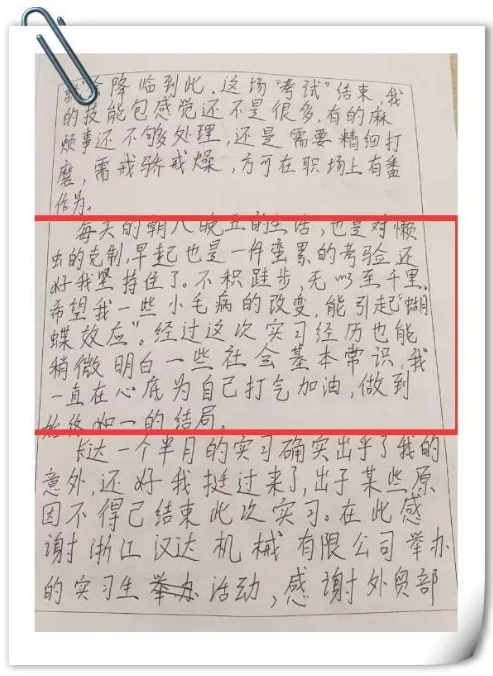 降临到此，这场“考试”结束，我
的技能包感觉还不是很多，有的麻
烦事还不够处理，还是需要精细打
磨，需戒骄戒燥，方可在职场上有番
作为。
每天的朝八晚五的生活，也是对懒
虫的克制，早起也是一件蛮累的考验，还
好我坚持住了。不积跬步，无以至千里。
希望我一些小毛病的改变，能引起“蝴
蝶效应”。经过这次实习经历也能
稍微明白一些社会基本常识，我
一直在心底为自己打气加油，做到
始终如一的结局。
长达一个半月的实习确实出乎了我的
意外，还好我挺过来了，出于某些原
因不得已结束此次实习。在此感
谢浙江汉达机械有限公司举办
的实习生活动，感谢外贸部